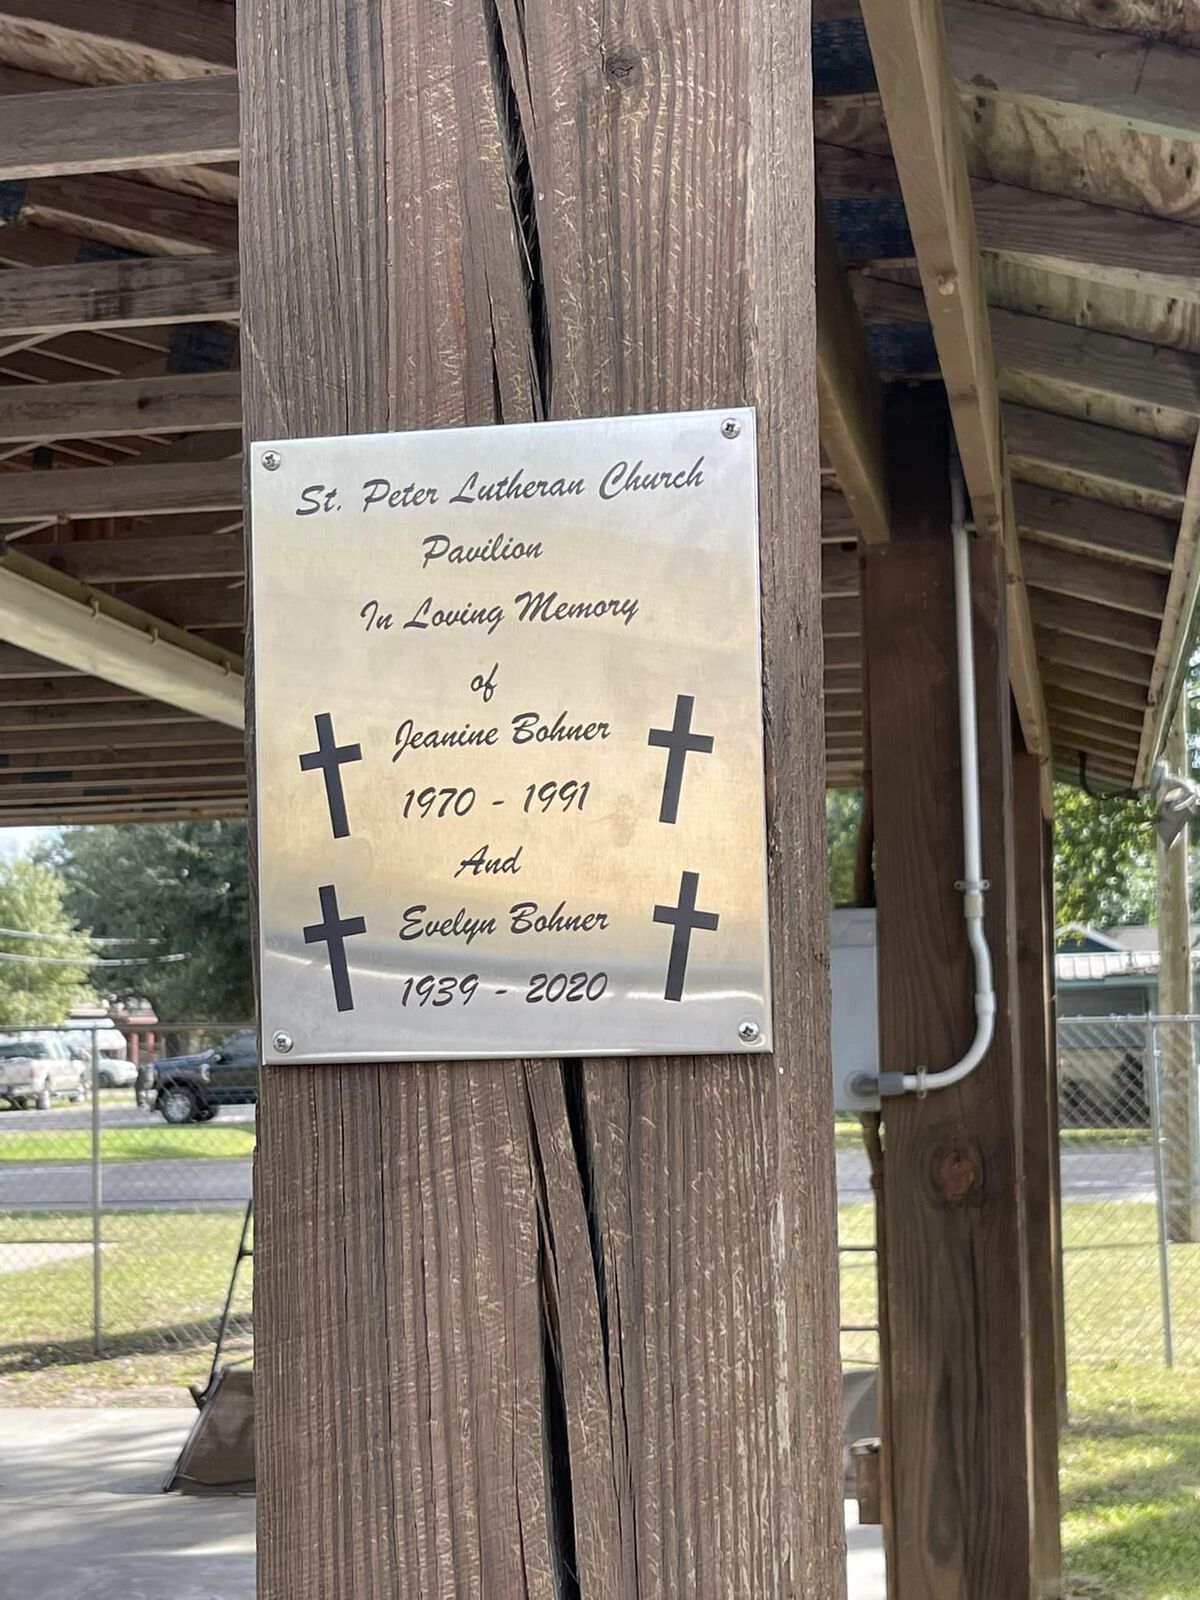 St. Peter Lutheran Church
Pavilion
In Loving Memory
of
Jeanine Bohner
1970 - 1991
And
Evelyn Bohner
1939 - 2020